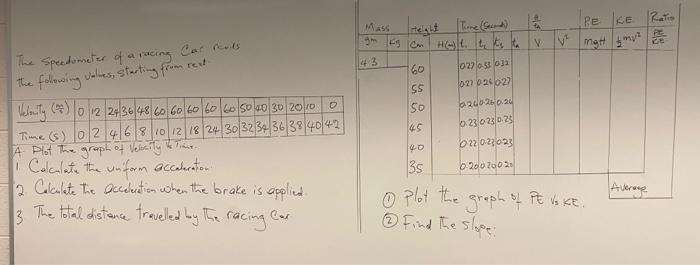 The Speedometer of a racing Car reads
the following values, starting from rest.
Velocity (m/s) 0 12 24 36 48 60 60 60 60 60 50 40 30 20 10 0
Time (s) 0 2 4 6 8 10 12 18 24 30 32 34 36 38 40 42
A. Plot The graph of Velocity Vs Time.
1. Calculate the uniform acceleration.
2 Calculate the acceleration when the brake is applied.
3. The total distance travelled by The racing Car.
Mass Height Time (Seconds) PE KE Ratio
gm Kg Cm H(m) t₁ t₂ t₃ tₐ V V² mgH ½mv² PE/KE
43 60 0.27 0.32
55 0.27 0.26 0.27
50 0.26 0.26 0.26
45 0.23 0.23 0.23
40 0.22 0.23 0.23
35 0.20 0.20 0.20
Average
① Plot the graph of PE Vs KE.
② Find the slope.